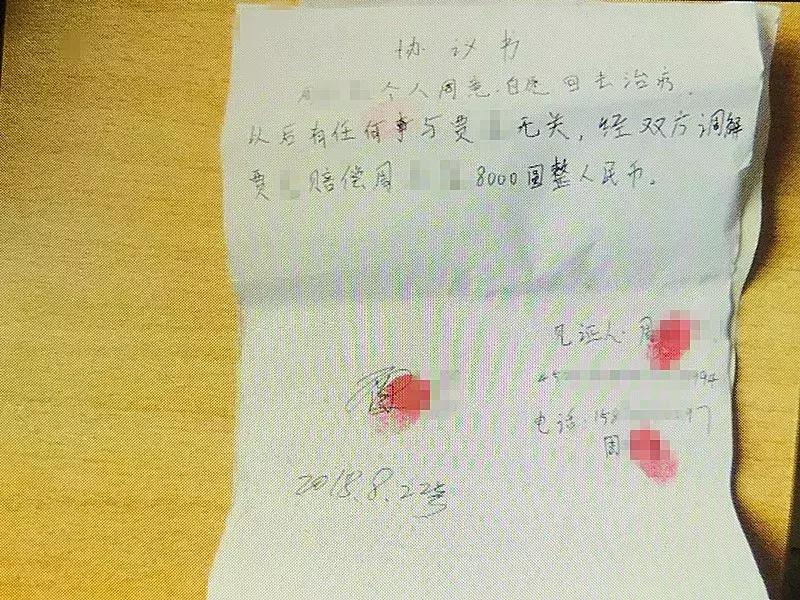 协议书
周 个人同意自愿回去治疗.
以后有任何事与贾 无关，经双方调解
贾 赔偿周 8000圆整人民币。
见证人:周
电话:158 97
周
贾
2018.8.22号